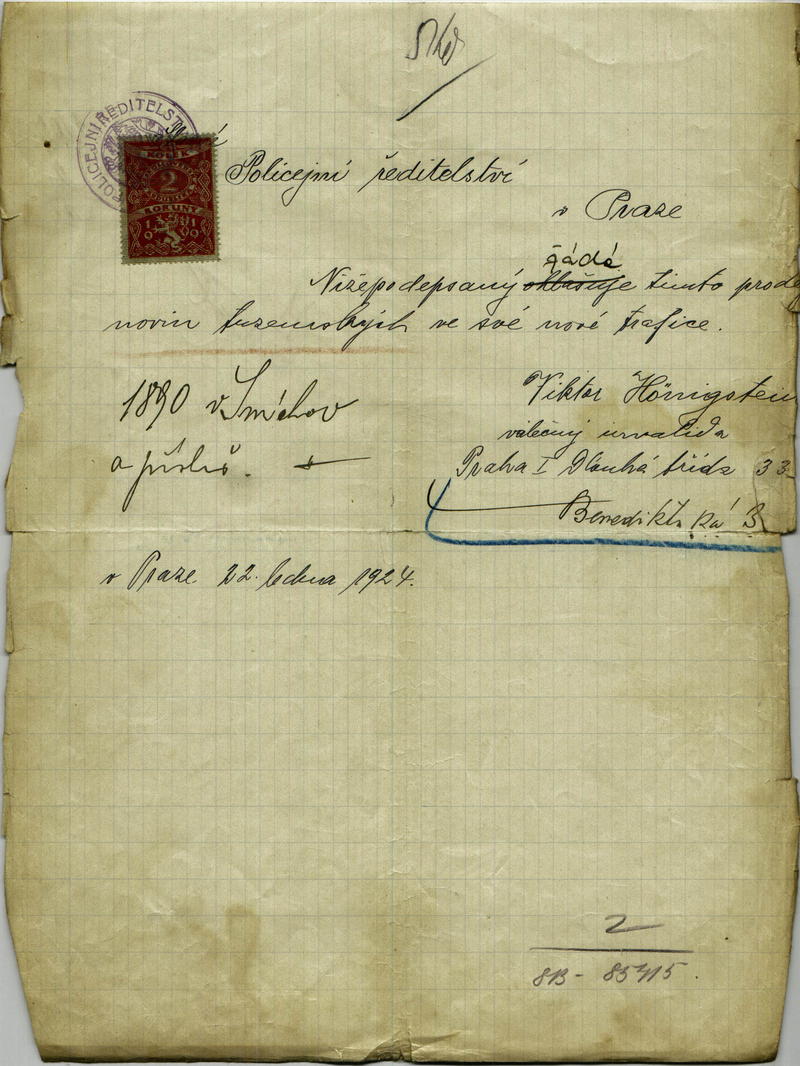 POLICEJNÍ ŘEDITELSTV
KOLEK
2
KORUNY
1919
Policejní ředitelství
v Praze
žádá
Nížepodepsaný ohlašuje tímto prode
novin tuzemských ve své nové trafice.
1890 v Smíchov
a přísluš.
Viktor Hönigstein
válečný invalida
Praha I Dlouhá třída 33
Benediktská 3
v Praze 22. ledna 1924.
2